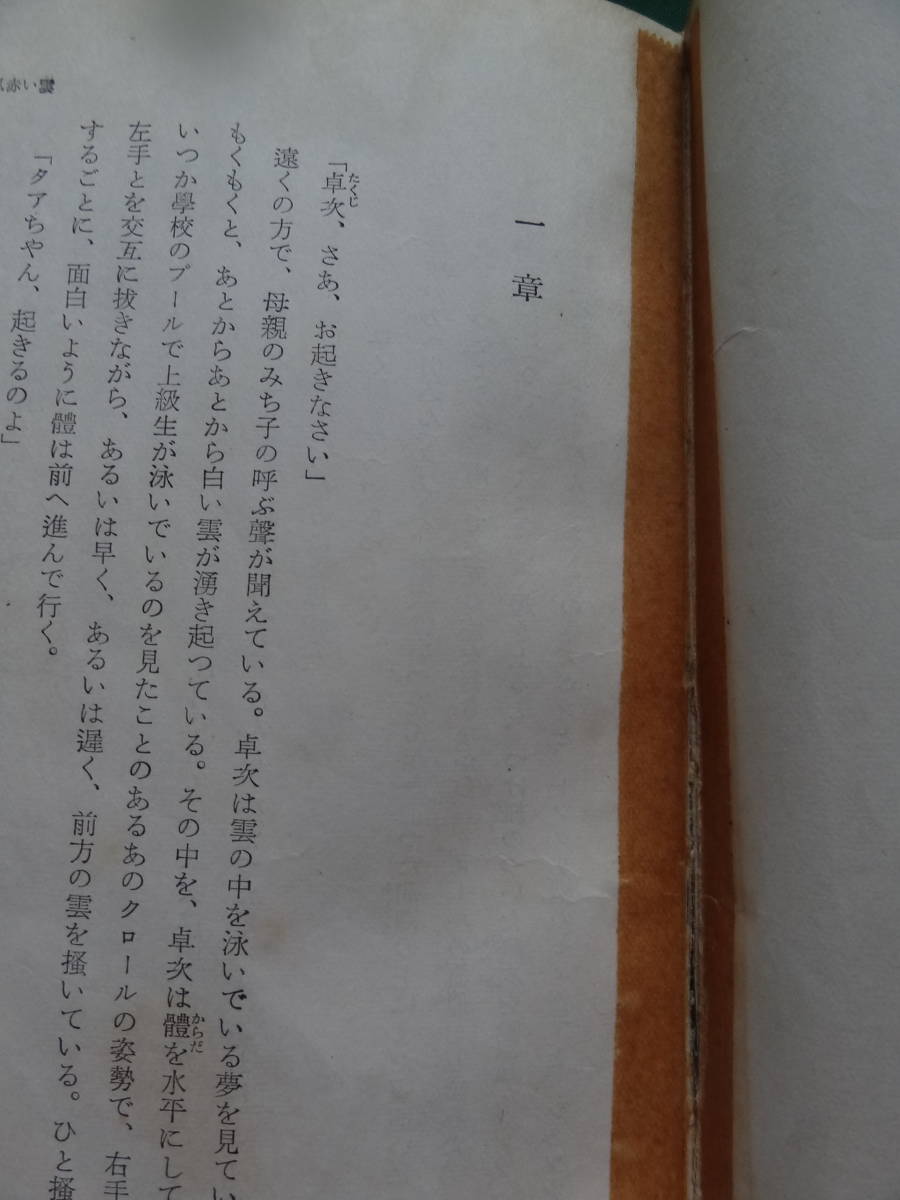 赤い雲
一章
「卓次、さあ、お起きなさい」
たくじ
遠くの方で、母親のみち子の呼ぶ聲が聞えている。卓次は雲の中を泳いでいる夢を見てい
もくもくと、あとからあとから白い雲が湧き起つている。その中を、卓次は體を水平にして
からだ
いつか學校のプールで上級生が泳いでいるのを見たことのあるあのクロールの姿勢で、右手
左手とを交互に拔きながら、あるいは早く、あるいは遲く、前方の雲を搔いている。ひと搔
するごとに、面白いように體は前へ進んで行く。
「タアちやん、起きるのよ」